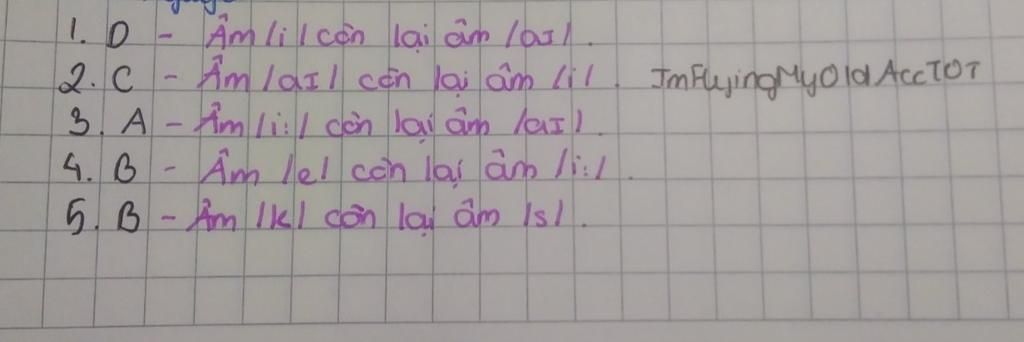 1. D - Âm /i/ còn lại âm /aɪ/.
2. C - Âm /aɪ/ còn lại âm /i/. ImFlyingMyOldAccTOT
3. A - Âm /i:/ còn lại âm /aɪ/.
4. B - Âm /e/ còn lại âm /i:/.
5. B - Âm /k/ còn lại âm /s/.